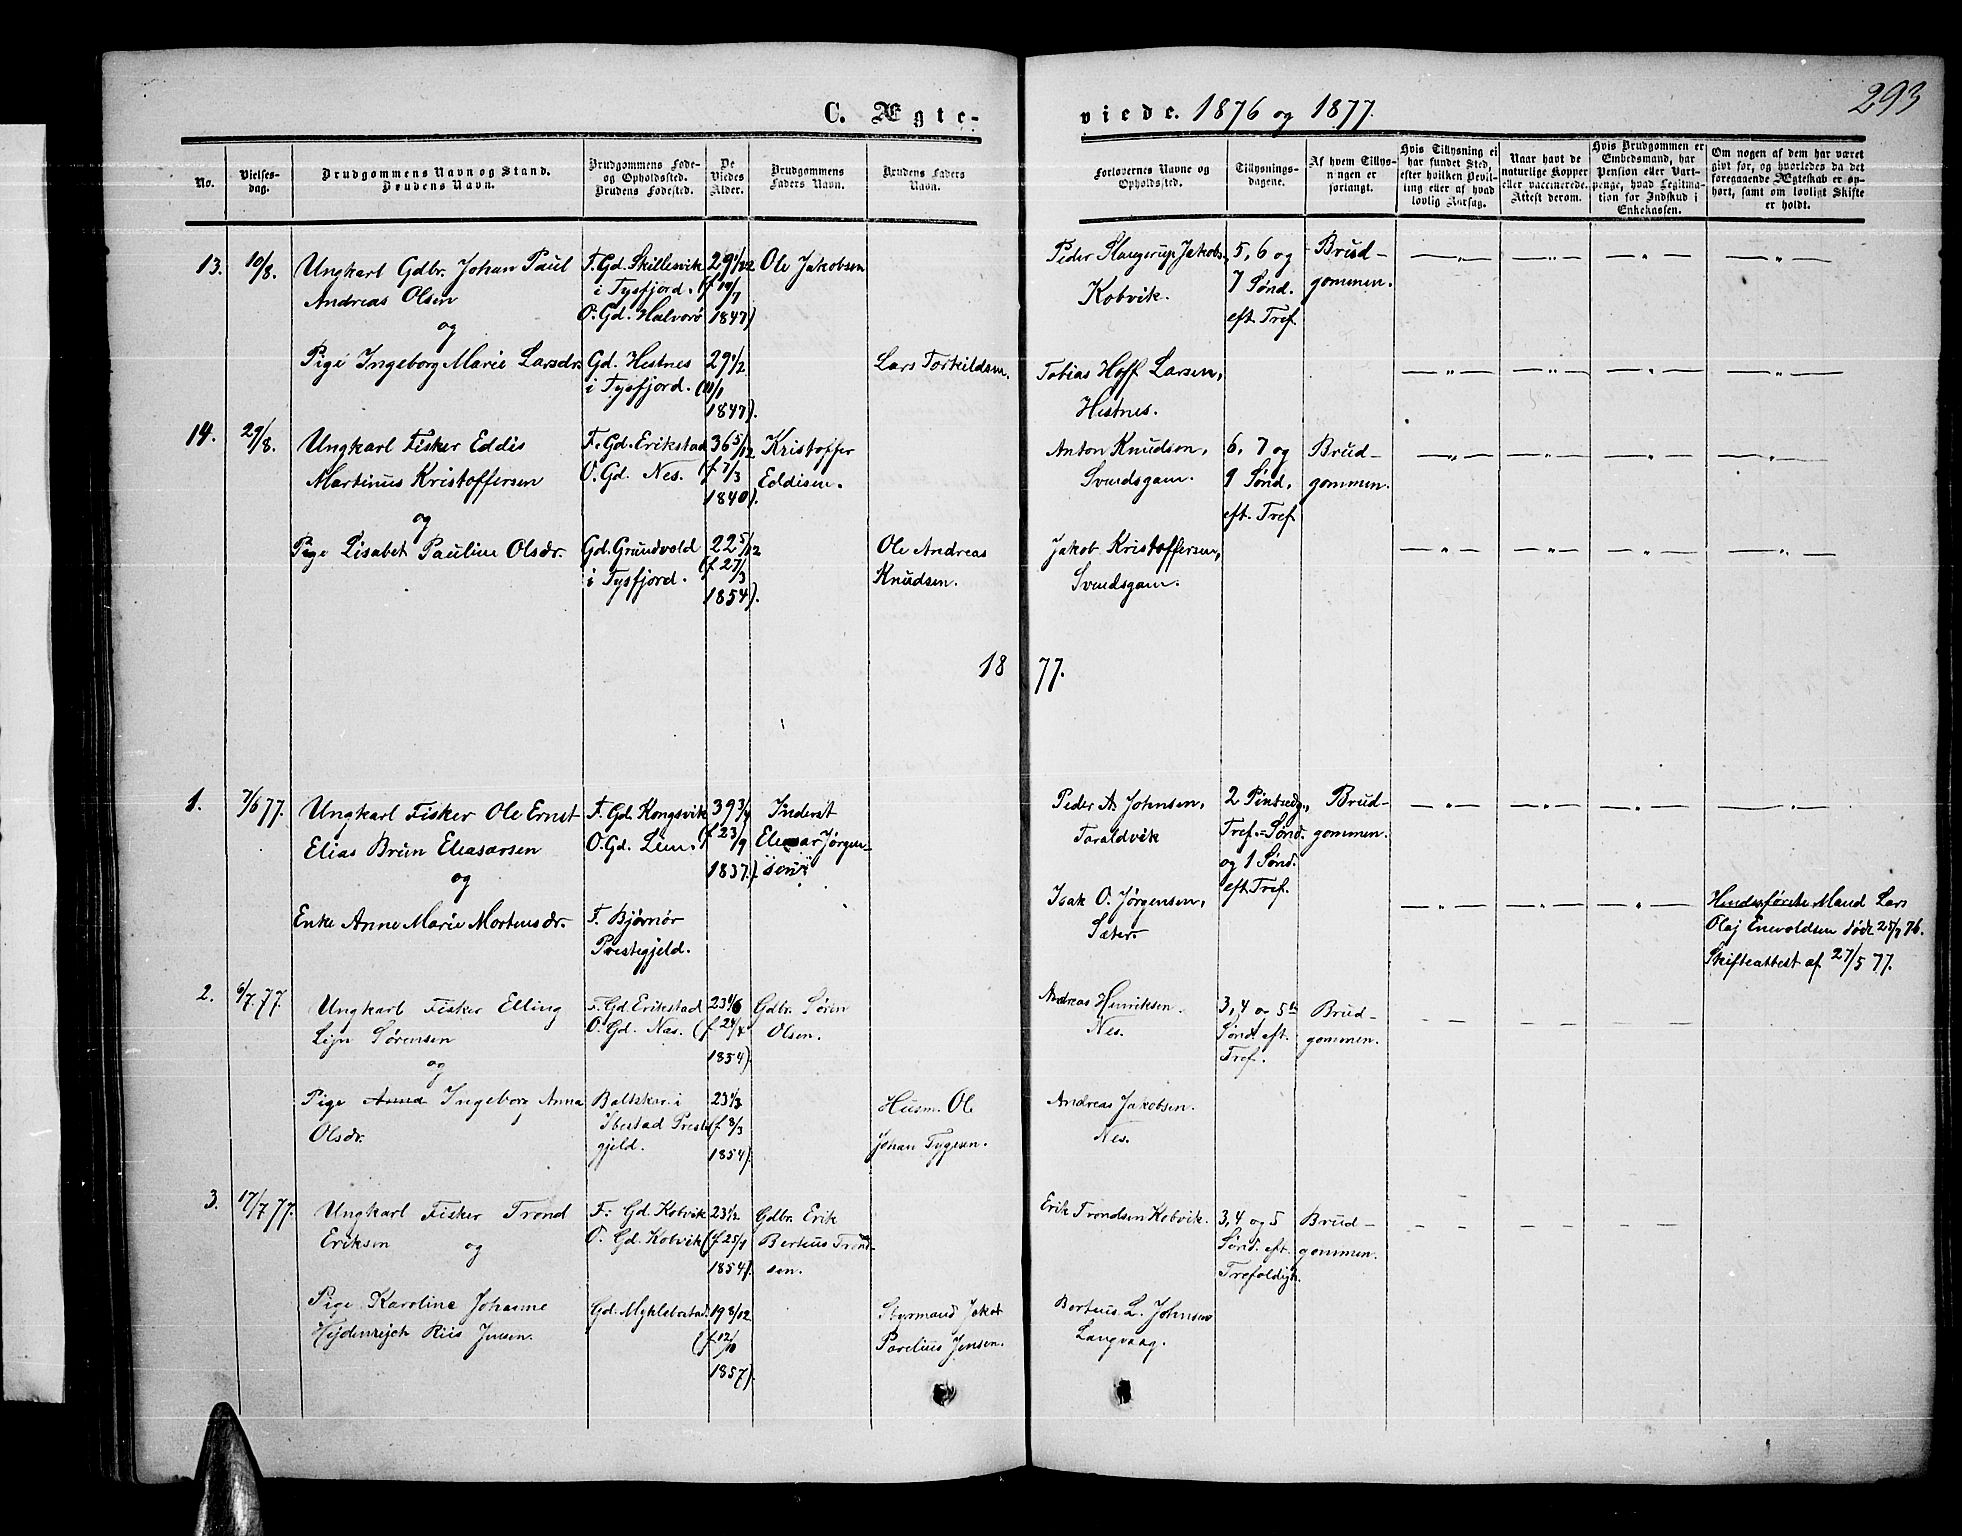 293
C. Ægteviede. 1876 og 1877.
No.
Vielsesdag.
Brudgommens Navn og Stand.
Brudens Navn.
Brudgommens Føde-
og Opholdssted.
Brudens Fødested.
De
Viedes
Alder.
Brudgommens
Faders Navn.
Brudens Faders
Navn.
Forlovernes Navne og
Opholdssted.
Tillysnings-
dagene.
Af hvem Tillys-
ningen er
forlangt.
Hvis Tillysning ei
har fundet Sted,
efter hvilken Bevil-
ling eller af hvad
lovlig Aarsag.
Naar havt de
naturlige Kopper
eller vaccinerede.
Attest derom.
Hvis Brudgommen er
Embedsmand, har
Pension eller Vart-
penge, hvad Legitima-
tion for Indskud i
Enkekassen.
Om nogen af dem har været
gift før, og hvorledes da det
foregaaende Ægteskab er op-
hørt, samt om lovligt Skifte
er holdt.
13.
10/8.
Ungkarl Gdbr. Johan Paul
Andreas Olsen
og
Pige Ingeborg Marie Larsdr.
F. Gd. Skillesvik
i Tysfjord.
O. Gd. Halvorø
Gd. Hestnes
i Tysfjord.
29 1/12
(f 19/7
1847)
29 1/2
1847).
Ole Jakobsen
Lars Torkildsen.
Peder Slangerup Jakobs.
Kobvik.
Tobias Hoff Larsen,
Hestnes.
5, 6 og
7 Sønd.
eft. Tref.
Brud-
gommen.
14.
29/8.
Ungkarl Fisker Eddis
Martinus Kristoffersen
og
Pige Lisabet Pauline Olsdr.
F. Gd. Erikstad
O. Gd. Nes.
Gd. Grundvold
i Tysfjord.
36 5/12
(f 7/3
1840).
22 5/12
(f 27/3
1854).
Kristoffer
Eddisen.
Ole Andreas
Knudsen.
Anton Knudsen,
Svendsgam.
Jakob Kristoffersen,
Svendsgam.
6, 7 og
9 Sønd.
eft. Tref
Brud-
gommen.
1877.
1.
7/6 77.
Ungkarl Fisker Ole Ernst
Elias Brun Eleasarsen
og
Enke Anne Marie Mortensdr.
F. Gd Kongsvik
O. Gd. Lem.
F. Bjørnør
Prestegjeld.
39 3/4
(f 23/9
1837.)
Inderst
Eleasar Jørgen-
sen
Peder A. Johnsen,
Taraldvik
Isak O. Jørgensen,
Sæter.
2 Pintsedg.,
Tref.-Sønd.
og 1 Sønd.
eft Tref.
Brud-
gommen.
Hendes første Mand Lars
Olaj Enevoldsen døde 25/7 76.
Skifteattest af 27/5 77.
2.
6/7 77.
Ungkarl Fisker Elling
Lijn Sørensen
og
Pige Anna Ingeborg Anna
Olsdr.
F. Gd. Erikstad
O. Gd. Nes.
Baltskar i
Ibestad Prest
gjeld.
23 1/6
(f 24/4
1854).
23 1/3
(f 8/3
1854).
Gdbr. Søren
Olsen.
Husm. Ole
Johan Tygesen.
Andreas Henriksen.
Nes.
Andreas Jakobsen.
Nes.
3, 4 og 5te
Sønd. eft.
Tref.
Brud-
gommen.
3.
17/7 77.
Ungkarl Fisker Trond
Eriksen
og
Pige Karoline Johanne
Hejdenrejch Riis Jensen.
F. Gd. Kobvik
O. Gd. Kobvik
Gd. Myklebostad
23 1/2
(f 25/1
1854).
19 8/12
(f 12/10
1857)
Gdbr. Erik
Berteus Trond-
sen.
Styrmand Jakob
Parelius Jensen.
Erik Trondsen Kobvik.
Berteus L. Johnsen
Langvaag.
3, 4 og 5
Sønd. eft.
Trefoldigh.
Brud-
gommen.